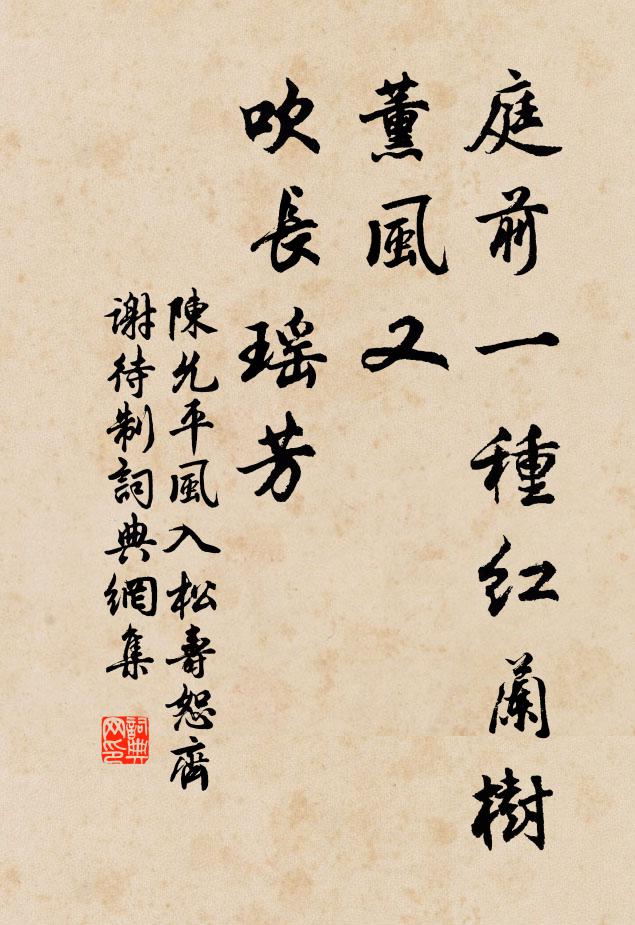 庭前一種紅蘭樹
薰風又
吹長瑶芳
陳允平風入松壽恕齊
謝待制詞典網集
詞典網印